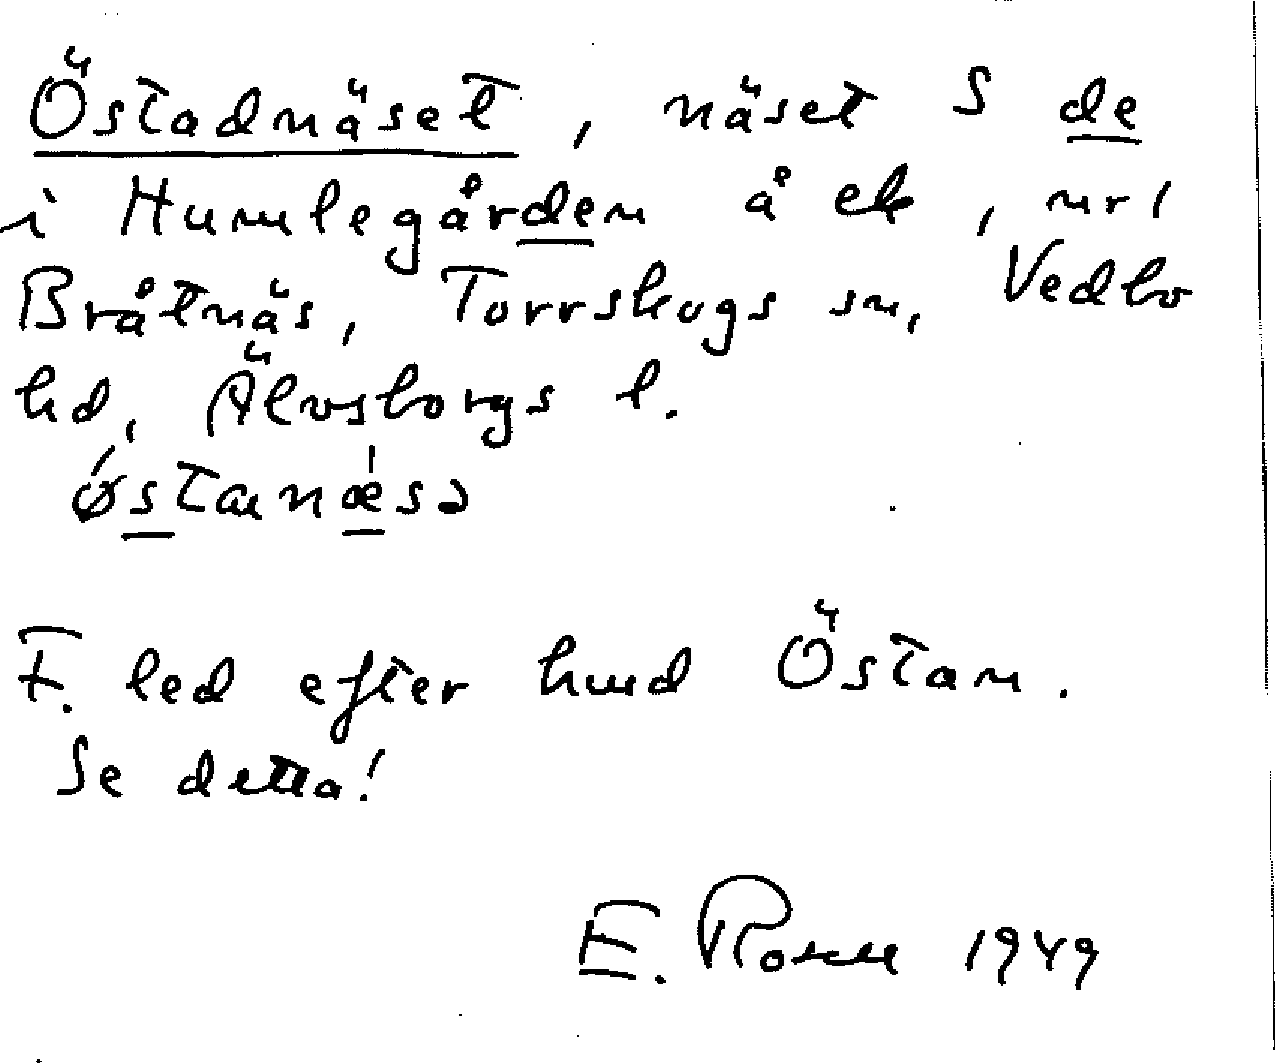 Östadnäset, näset S de
i Humlegården å ek, nr 1
Bråtnäs, Torrskogs sn, Vedbo
hd, Älvsborgs l.
ǿstanǽsə
F. led efter hmd Östam.
Se detta!
E. Rosell 1949